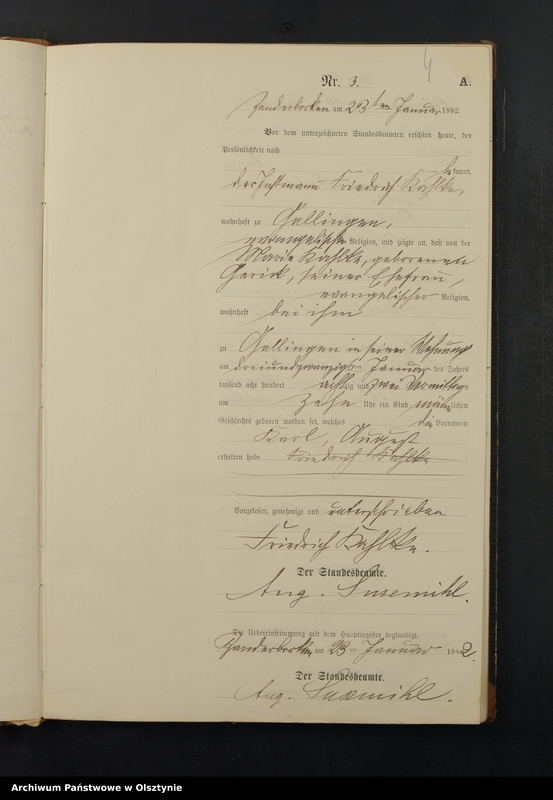 4
Nr. 3. A.
Zanderborken am 23ten Januar 1882.
Vor dem unterzeichneten Standesbeamten erschien heute, der
Persönlichkeit nach
bekannt,
der Instmann Friedrich Kahlke,
wohnhaft zu Gallingen,
evangelischer Religion, und zeigte an, daß von der
Marie Kahlke, geborenen
Gerick, seiner Ehefrau,
evangelischer Religion,
wohnhaft bei ihm
zu Gallingen in seiner Wohnung
am dreiundzwanzigsten Januar des Jahres
tausend acht hundert achtzig und zwei Vormittags
um zehn Uhr ein Kind männlichen
Geschlechts geboren worden sei, welches die Vornamen
Karl, August
erhalten habe Friedrich Kahlke
Vorgelesen, genehmigt und unterschrieben
Friedrich Kahlke.
Der Standesbeamte.
Aug. Susemihl.
Die Uebereinstimmung mit dem Hauptregister beglaubigt.
Zanderborken am 23ten Januar 1882.
Der Standesbeamte.
Aug. Susemihl.
Archiwum Państwowe w Olsztynie